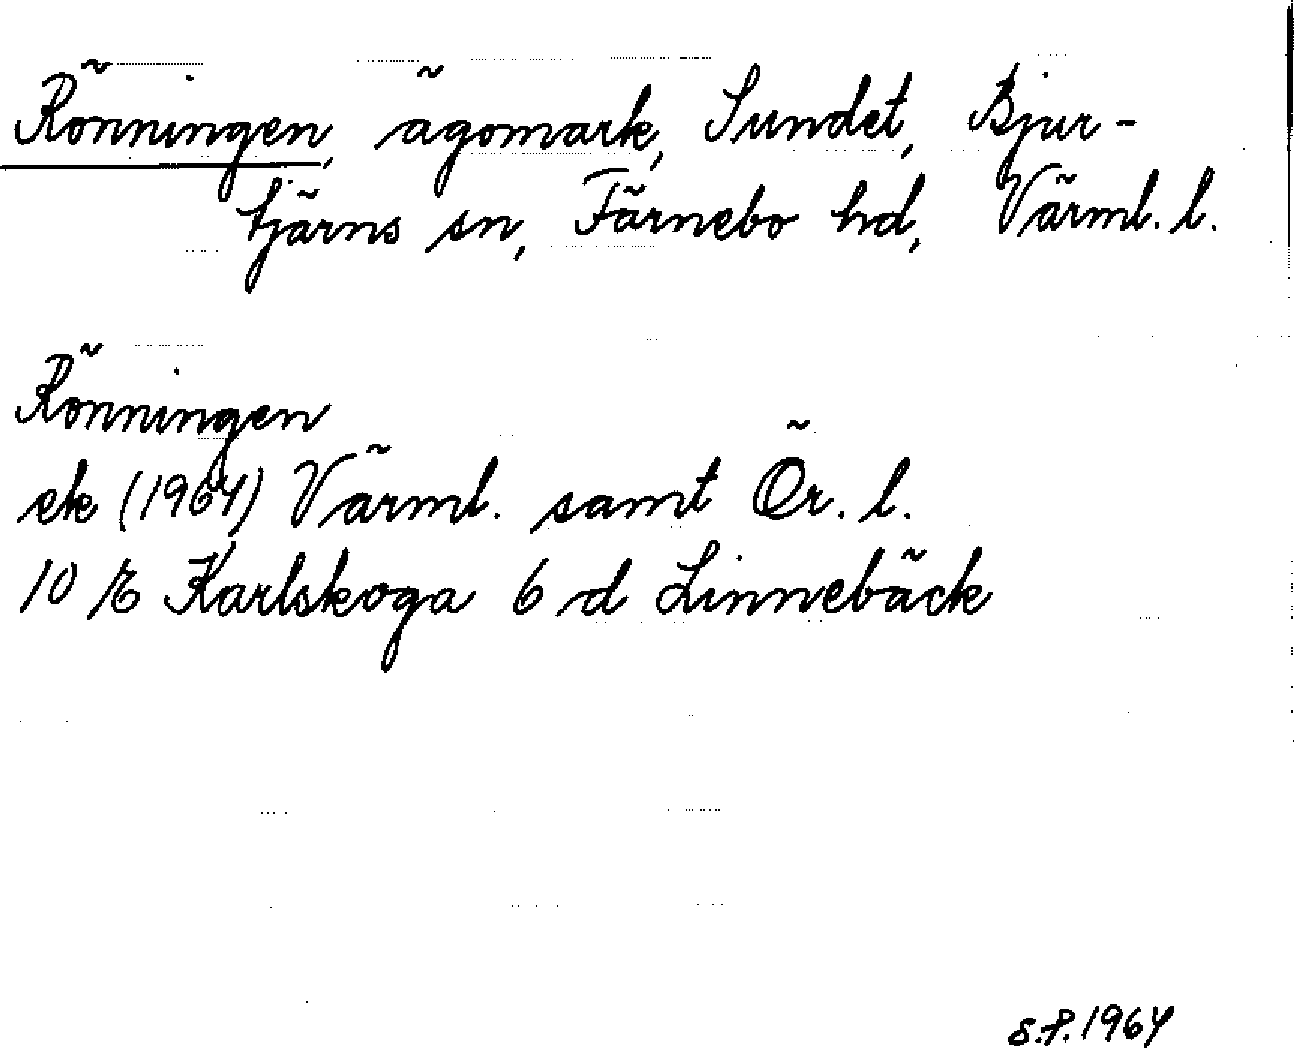 Rönningen, ägomark, Sundet, Bjur-
tjärns sn, Färnebo hd, Värml. l.
Rönningen
ek (1964) Värml. samt Ör. l.
10 E Karlskoga 6 d Linnebäck
S.F. 1964